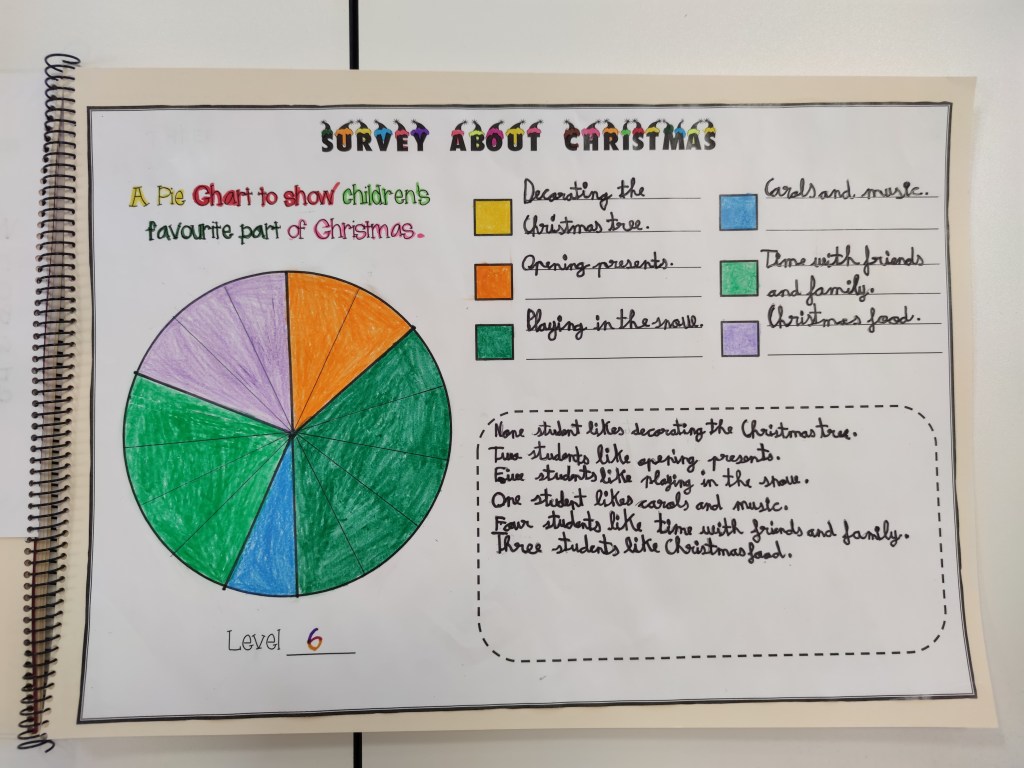 SURVEY ABOUT CHRISTMAS
A Pie Chart to show children's
favourite part of Christmas.
Decorating the
Christmas tree.
Opening presents.
Playing in the snow.
Carols and music.
Time with friends
and family.
Christmas food.
None student likes decorating the Christmas tree.
Two students like opening presents.
Five students like playing in the snow.
One student likes carols and music.
Four students like time with friends and family.
Three students like Christmas food.
Level 6